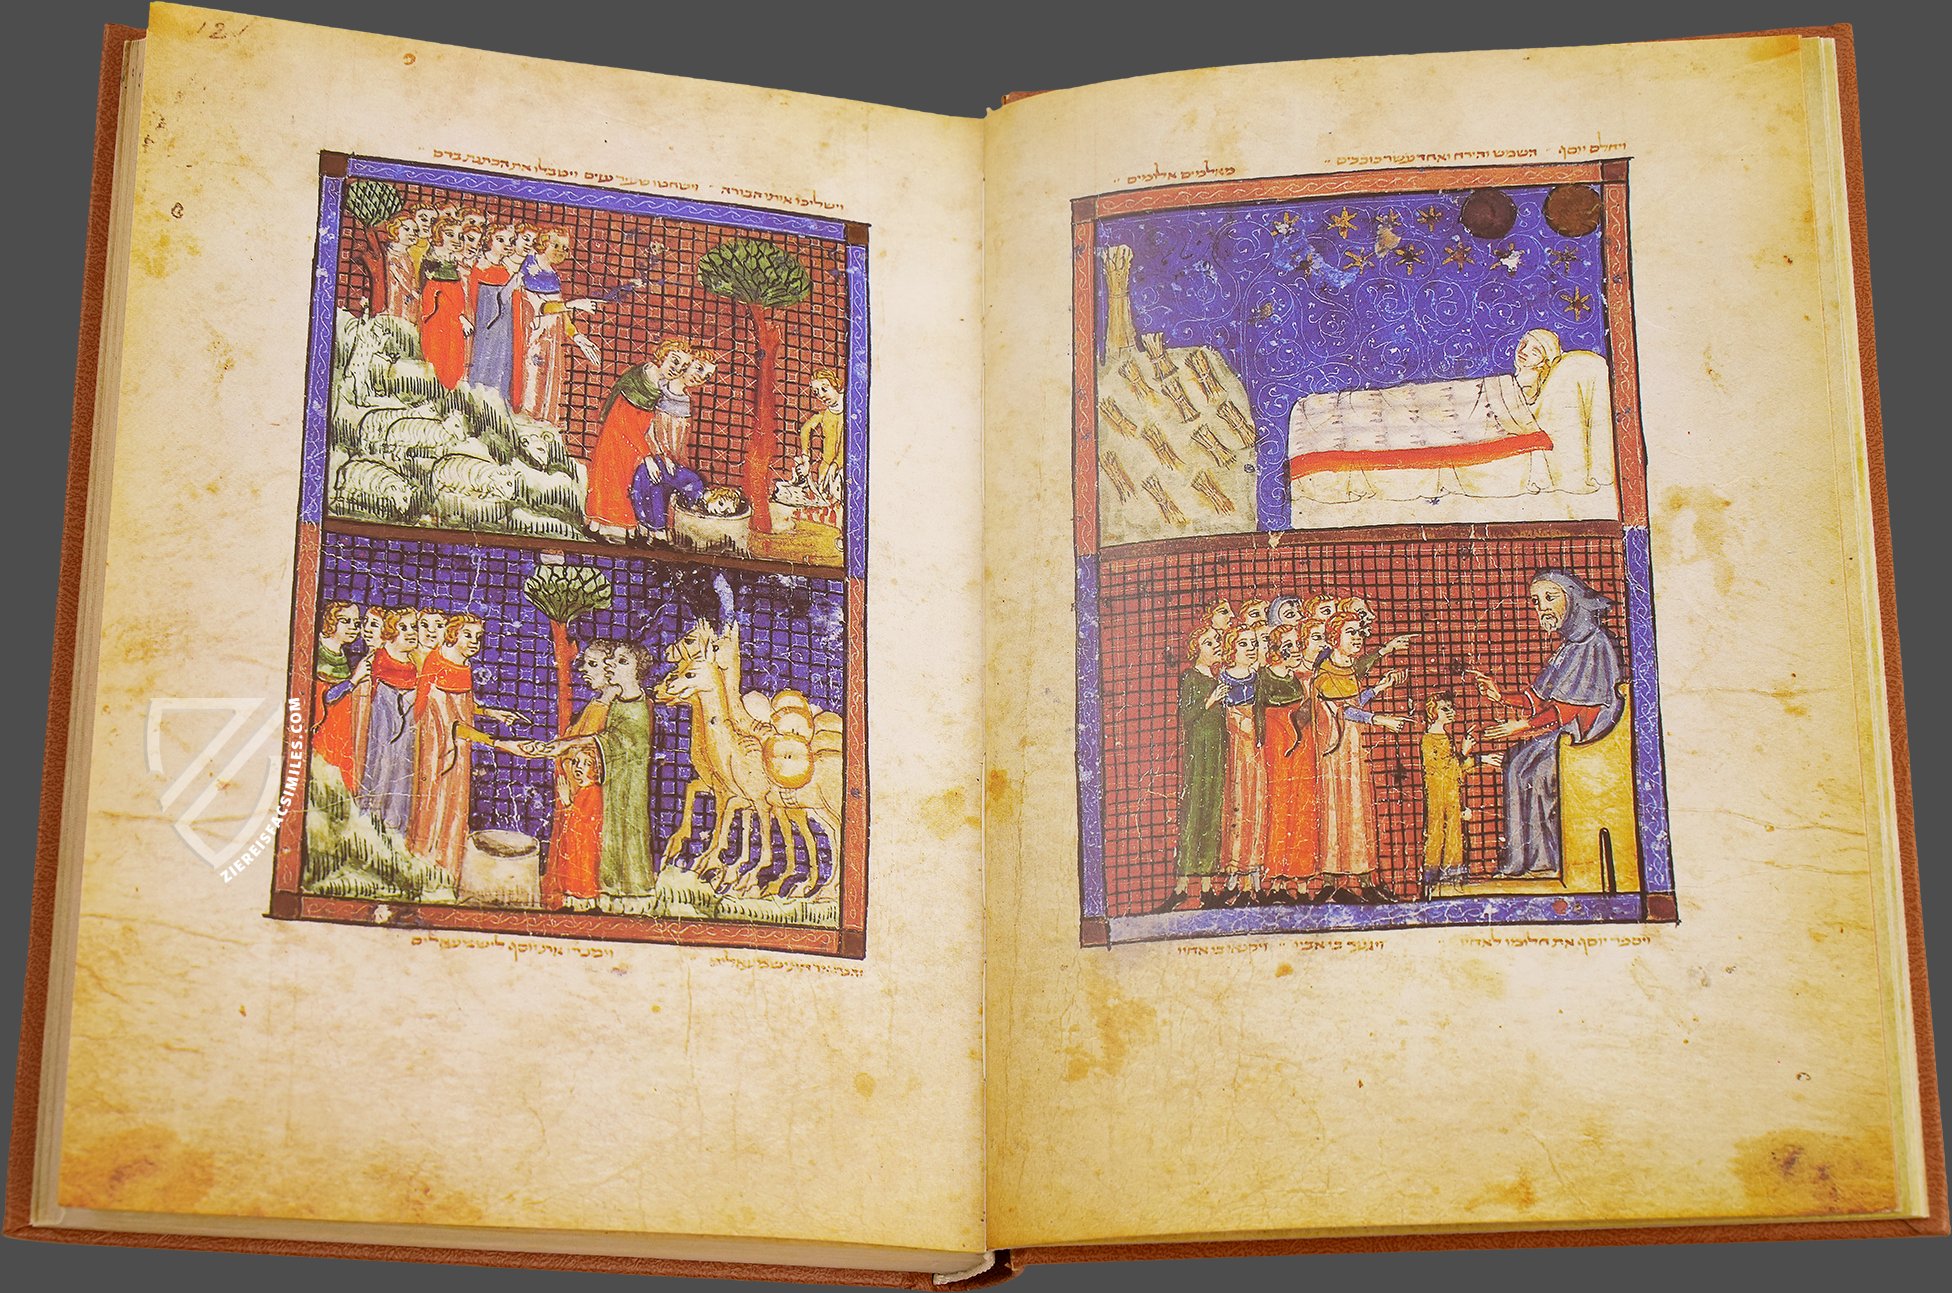 ויחלם יוסף השמש והירח ואחד עשר כוכבים
מאלמים אלומים
ויספר יוסף את חלומו לאחיו ויגער בו אביו ויקנאו בו אחיו
וישליכו אותו הבורה וישחטו שעיר עזים ויטבלו את הכתנת בדם
וימכרו את יוסף לישמעאלים
121
ZIEREISFACSIMILES.COM